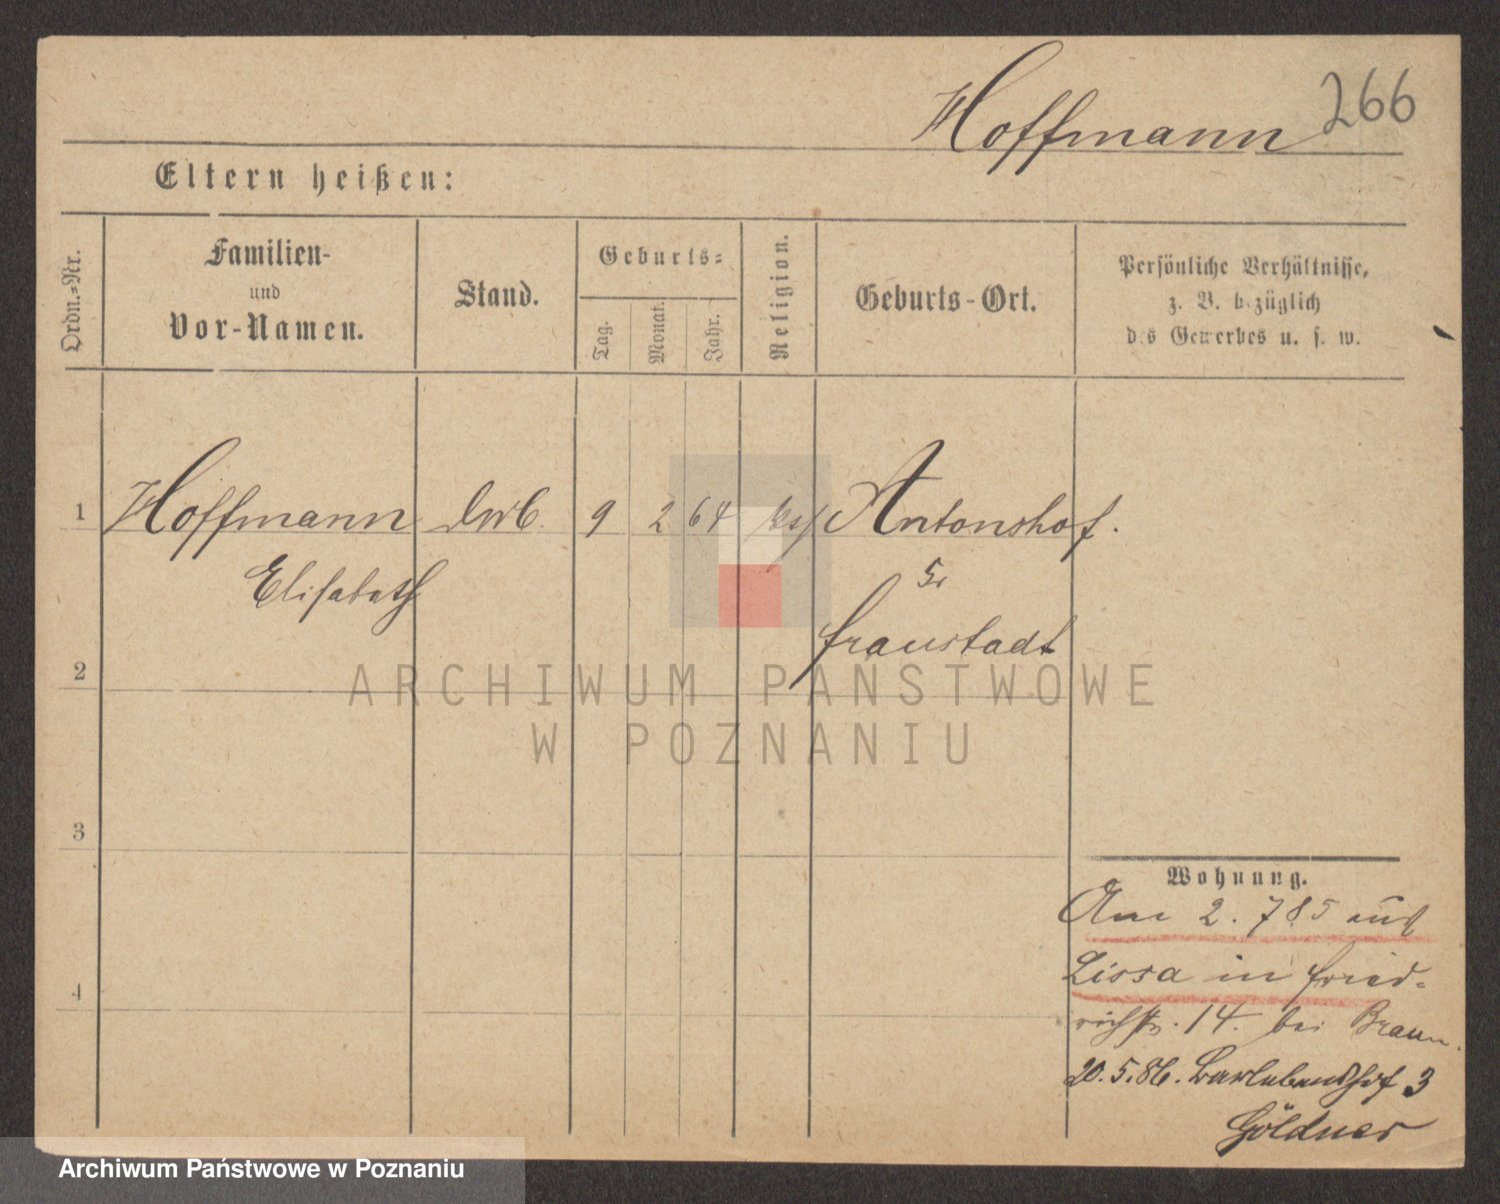 Hoffmann 266
Eltern heißen:
Ordn.-Nr.
Familien-
und
Vor-Namen.
Stand.
Geburts-
Tag.
Monat.
Jahr.
Religion.
Geburts-Ort.
Persönliche Verhältnisse,
z. B. bezüglich
des Gewerbes u. s. w.
1 Hoffmann 9 2 64 Antonshof.
Elisabeth
Fraustadt
2
ARCHIWUM PAŃSTWOWE
W POZNANIU
3
Wohnung.
Am 2. 7 85 aus
Lissa in Fried-
4
richstr. 14. bei Braun.
20. 5. 86. 3
Göldner
Archiwum Państwowe w Poznaniu